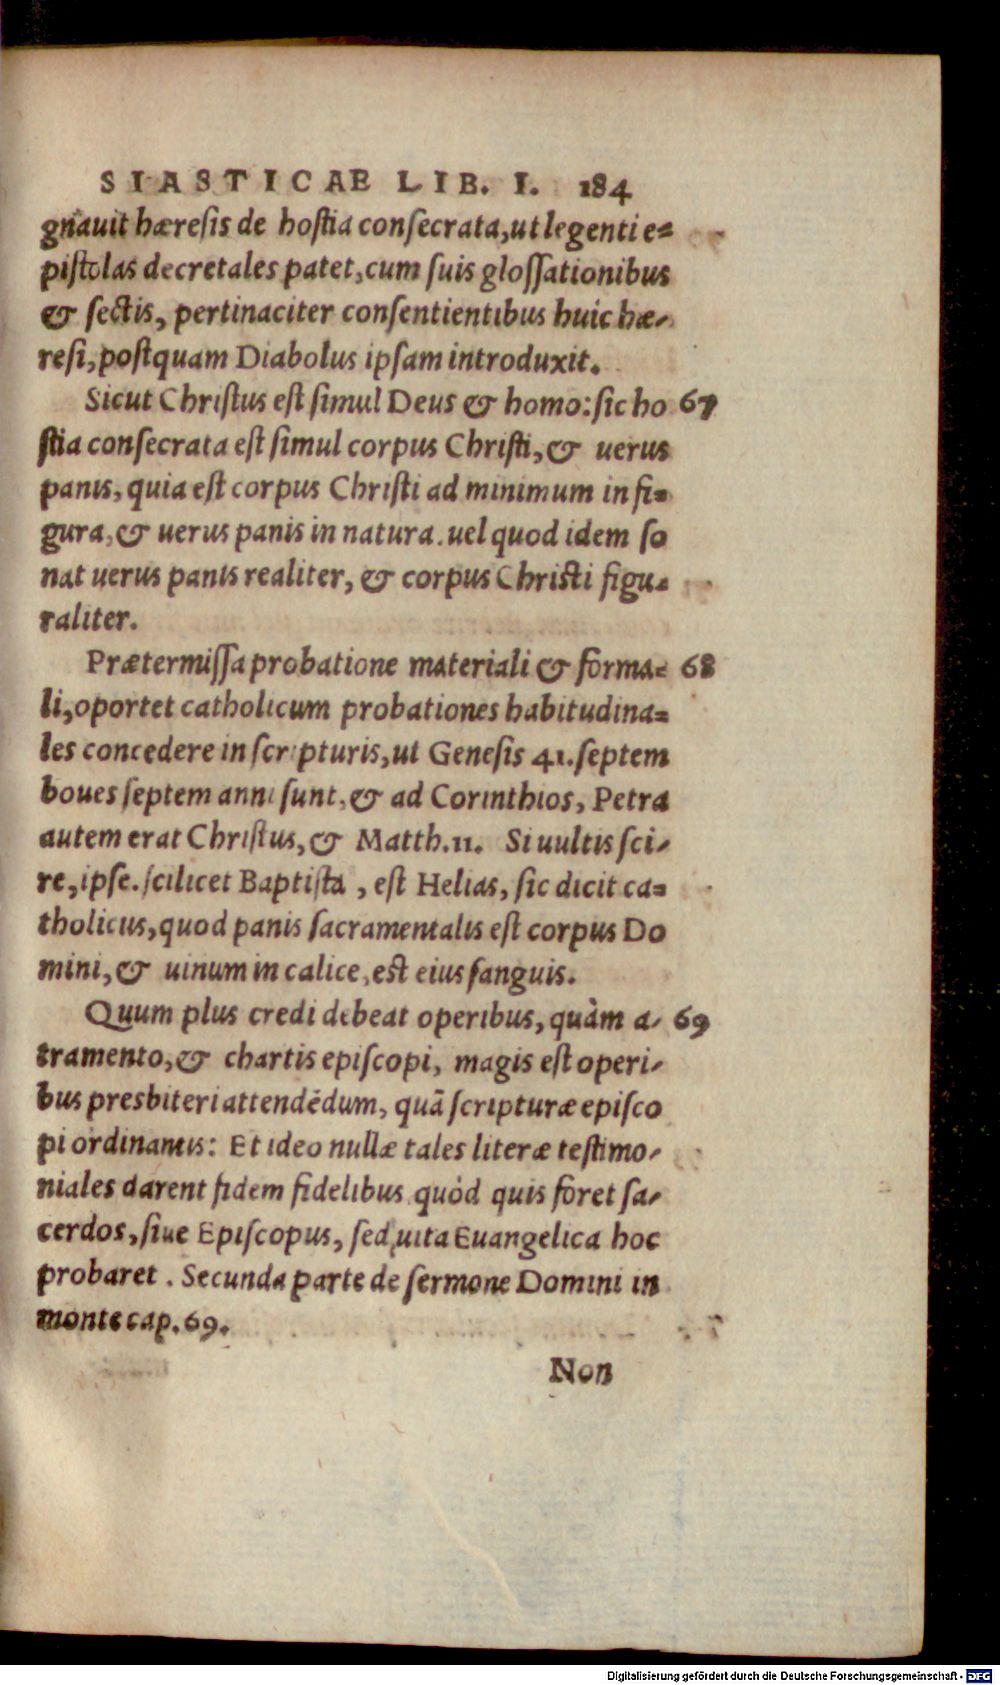 SIASTICAE LIB. I. 184
gnauit hæresis de hostia consecrata, ut legenti e=
pistolas decretales patet, cum suis glossationibus
& sectis, pertinaciter consentientibus huic hæ-
resi, postquam Diabolus ipsam introduxit.
Sicut Christus est simul Deus & homo: sic ho 67
stia consecrata est simul corpus Christi, & uerus
panis, quia est corpus Christi ad minimum in fi=
gura, & uerus panis in natura. uel quod idem so
nat uerus panis realiter, & corpus Christi figu=
raliter.
Prætermissa probatione materiali & forma= 68
li, oportet catholicum probationes habitudina=
les concedere in scripturis, ut Genesis 41. septem
boues septem anni sunt, & ad Corinthios, Petra
autem erat Christus, & Matth. 11. Si uultis sci-
re, ipse. scilicet Baptista, est Helias, sic dicit ca=
tholicus, quod panis sacramentalis est corpus Do
mini, & uinum in calice, est eius sanguis.
Quum plus credi debeat operibus, quàm a- 69
tramento, & chartis episcopi, magis est operi-
bus presbiteri attendēdum, quā scripturæ episco
pi ordinantis: Et ideo nullæ tales literæ testimo-
niales darent fidem fidelibus quòd quis foret sa-
cerdos, siue Episcopus, sed uita Euangelica hoc
probaret. Secunda parte de sermone Domini in
monte cap. 69.
Non
Digitalisierung gefördert durch die Deutsche Forschungsgemeinschaft - DFG